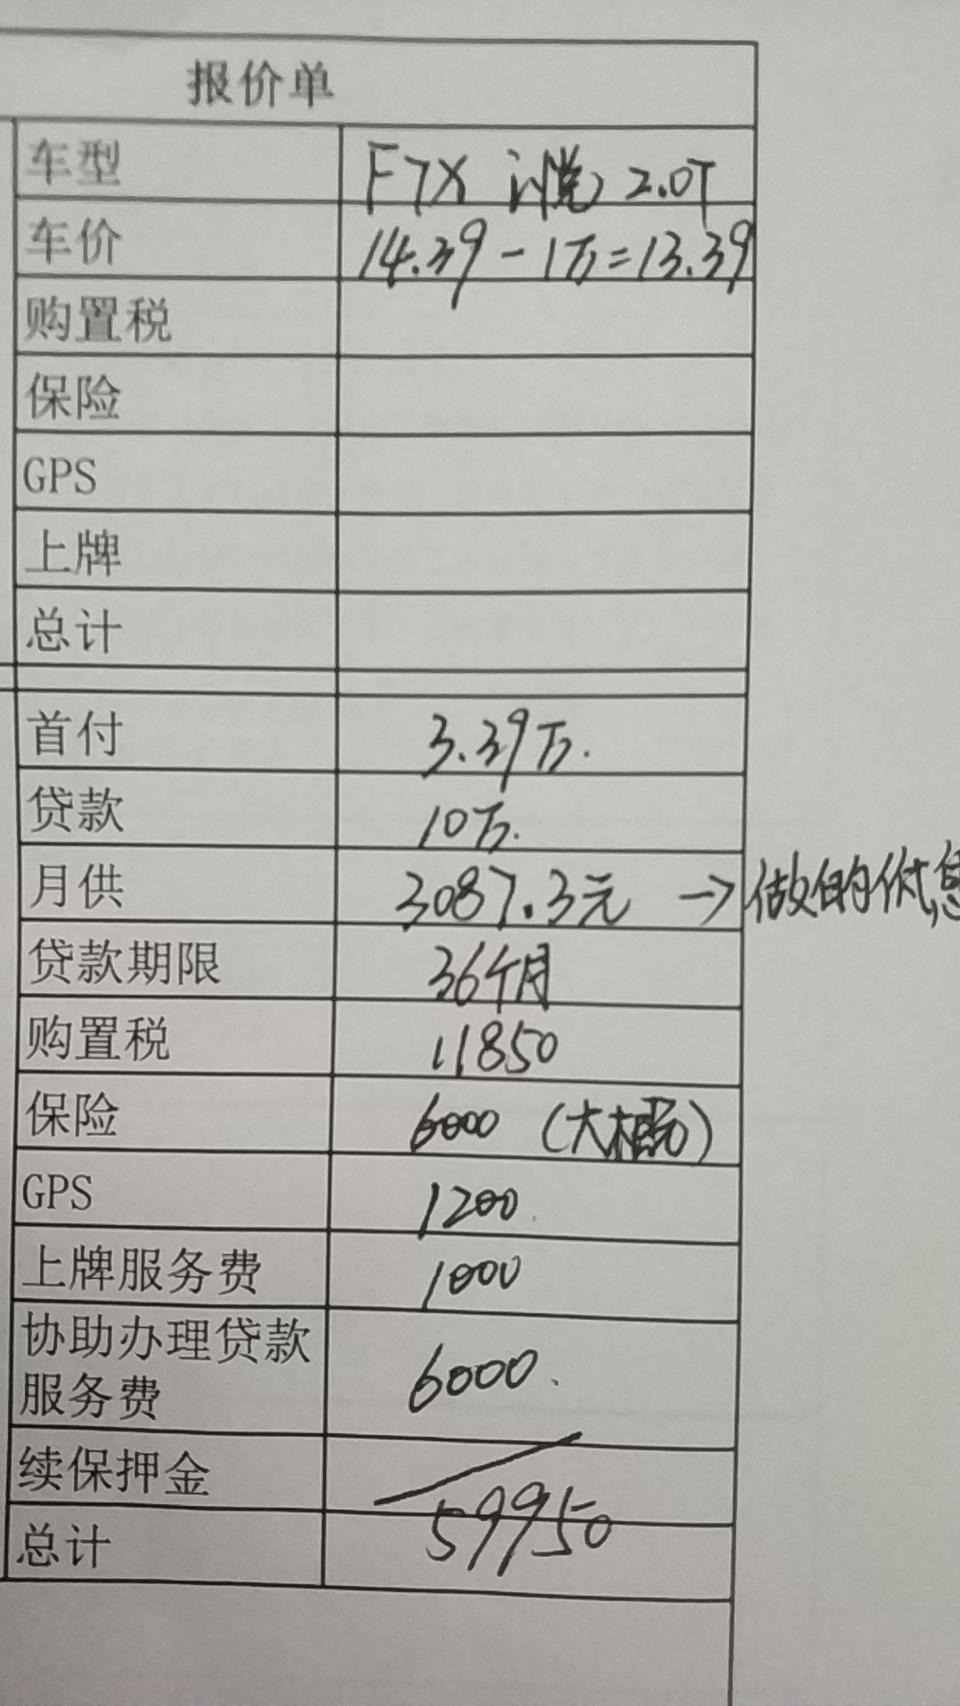 报价单
车型 F7X 2.0T
车价 14.39-1万=13.39
购置税
保险
GPS
上牌
总计
首付 3.39万.
贷款 10万.
月供 3087.3元 → 做的低息
贷款期限 36个月
购置税 11850
保险 6000 (大概)
GPS 1200
上牌服务费 1000
协助办理贷款
服务费 6000.
续保押金
总计 59950